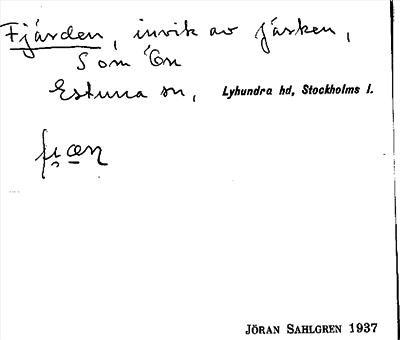 Fjärden, invik av Fjärden,
S om Ön
Estuna sn, Lyhundra hd, Stockholms l.
JÖRAN SAHLGREN 1937